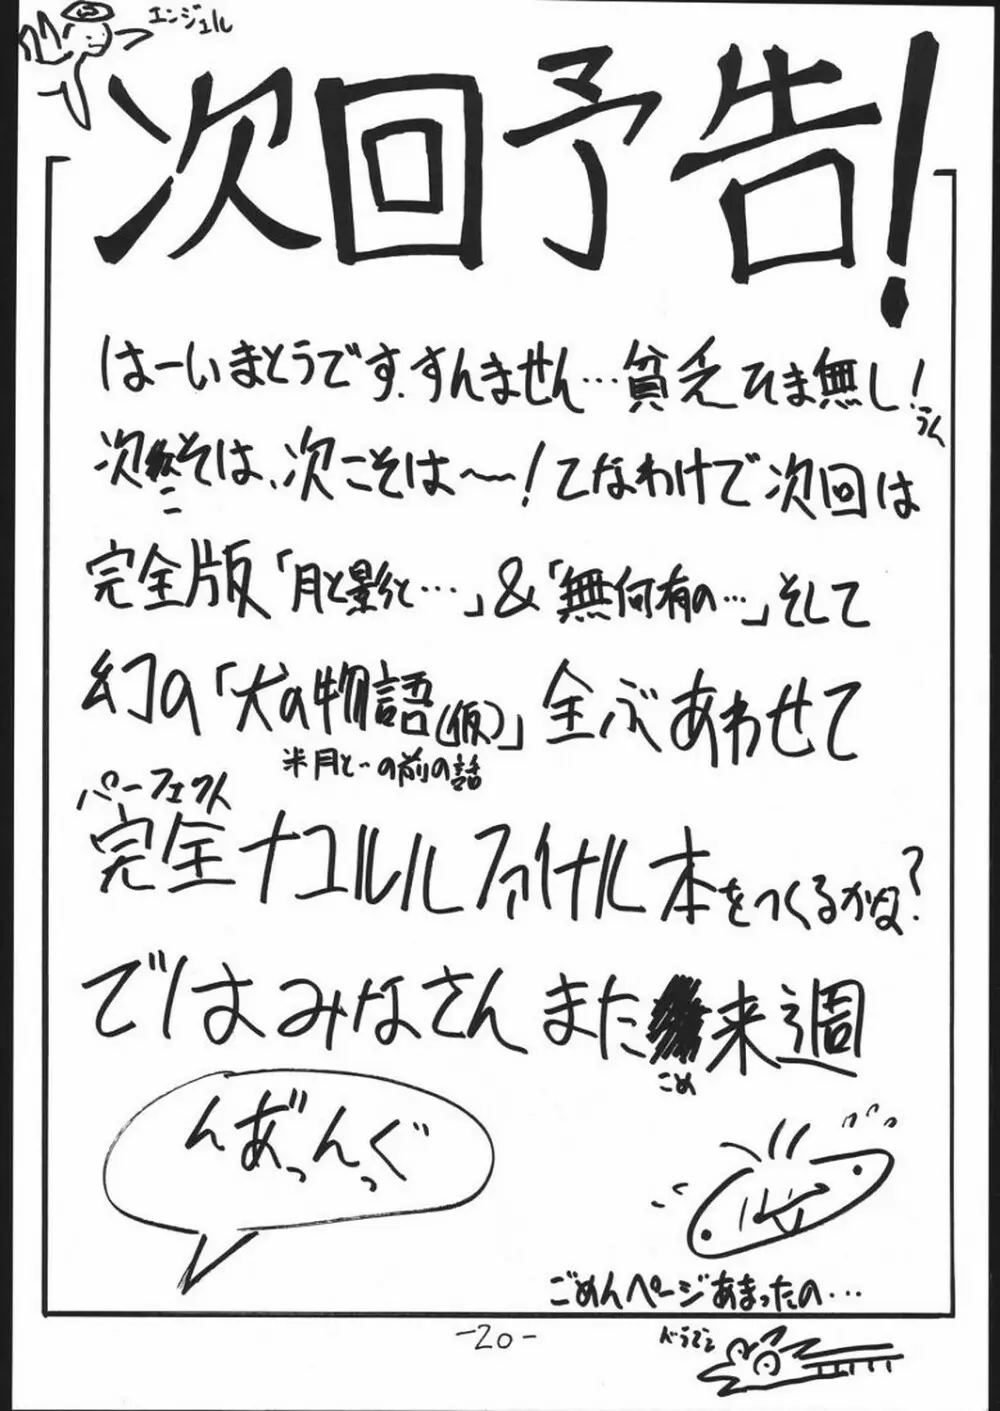 エンジェル
次回予告!
はーいまとうです.すんません…貧乏ひま無し!
うん
次こそは、次こそは〜!てなわけで次回は
完全版「月と影と…」&「無何有の…」そして
幻の「犬の物語(仮)」全ぶあわせて
半月と‥の前の話
パーフェクト
完全ナコルルファイナル本をつくるかな?
ではみなさんまた来週
こめ
んあ゛っんっぐ
ごめんページあまったの…
-20-